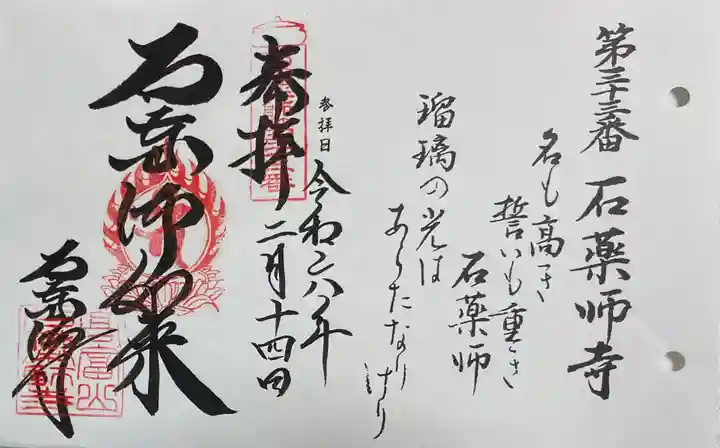 第三十三番 石薬師寺
名も高き
誓いも重き
石薬師
瑠璃の光は
あらたなり
けり
参拝日
令和六年
二月十四日
奉拝
石薬師如来
石薬師寺